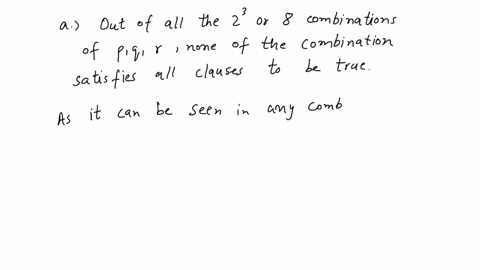 a.) Out of all the 2³ or 8 combinations
of p,q, r , none of the combination
satisfies all clauses to be true.
As it can be seen in any comb